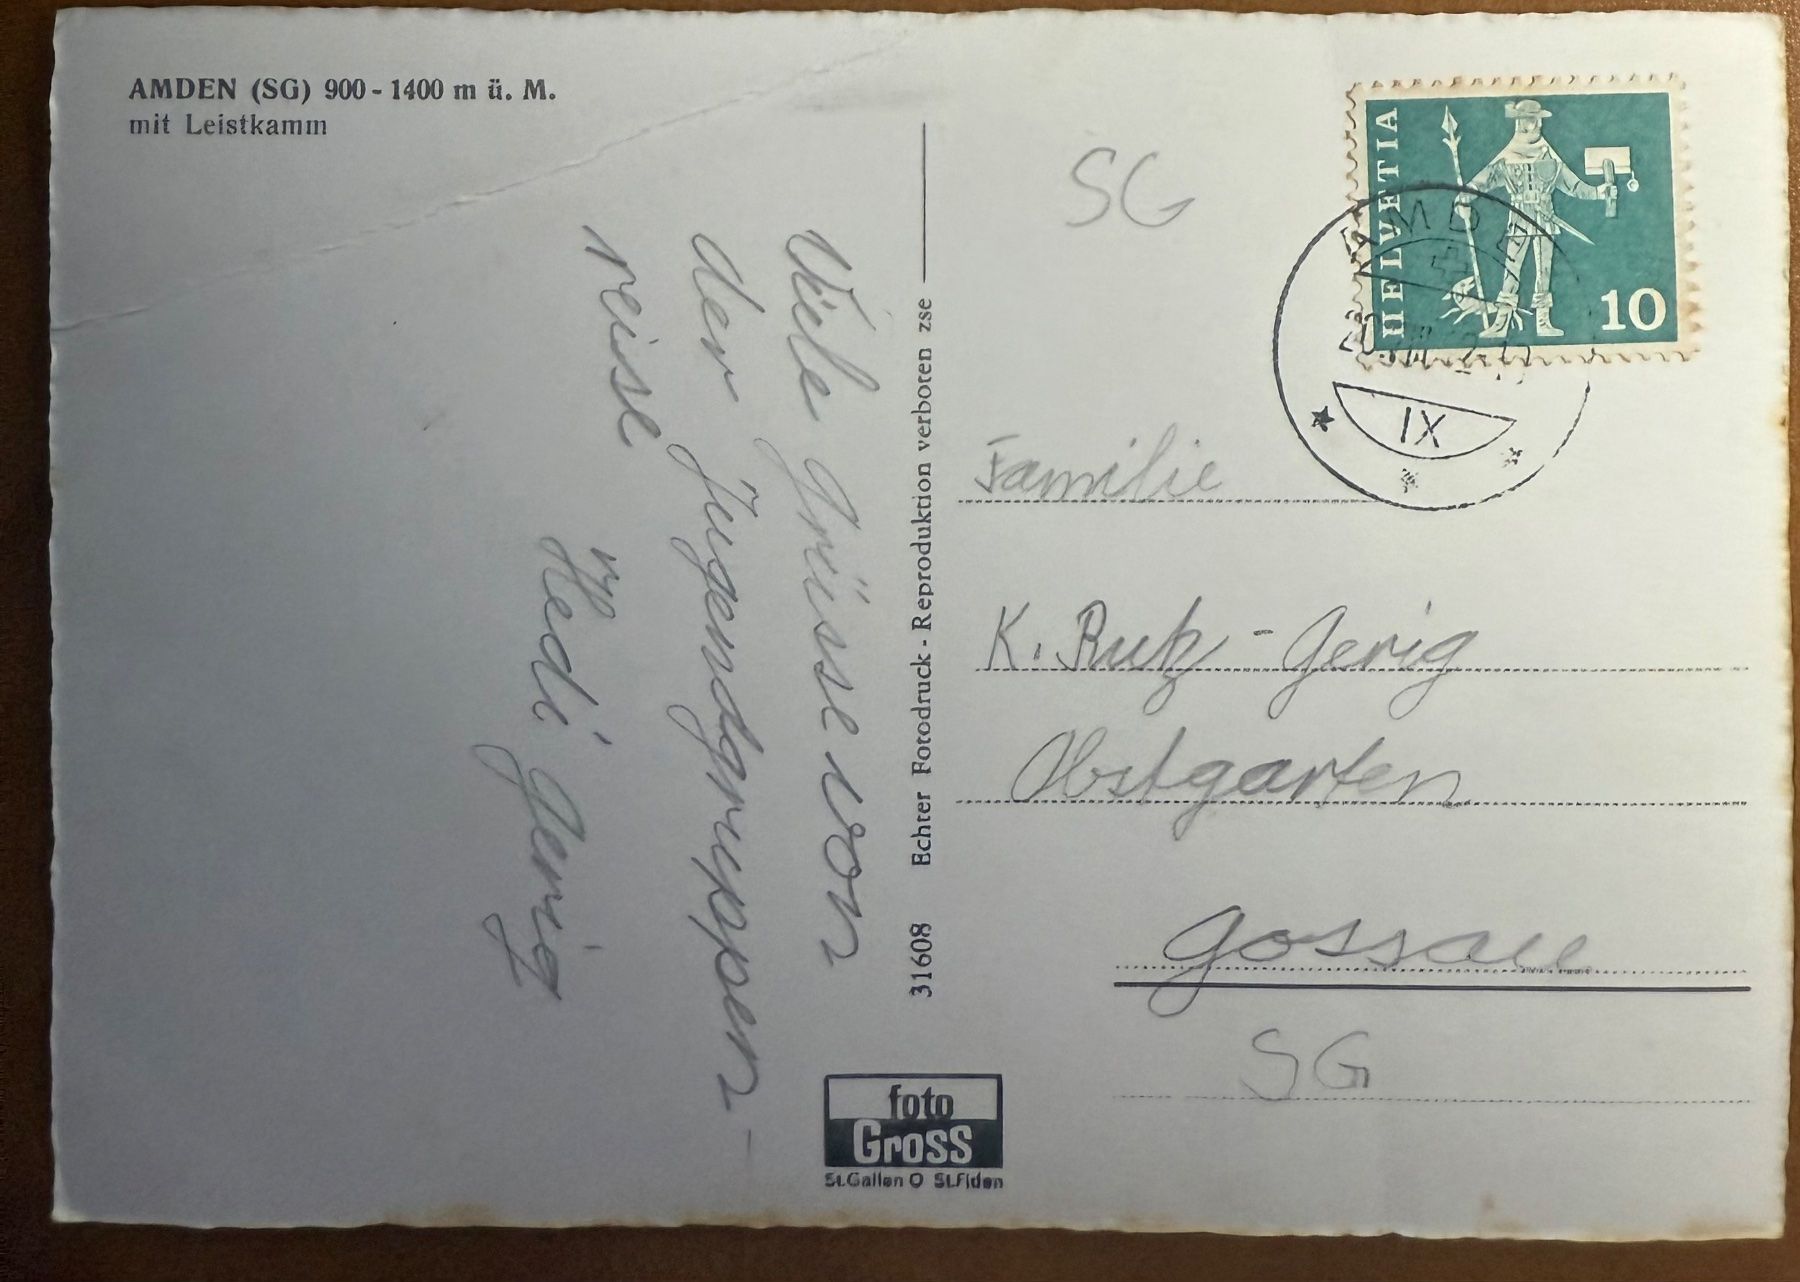 AMDEN (SG) 900 - 1400 m ü. M.
mit Leistkamm
Viele Grüsse von
der Jugendgruppen-
reise
Hedi Gerig
31608 Echter Fotodruck - Reproduktion verboten zse
foto
Gross
St.Gallen O St.Fiden
SG
HELVETIA
10
AMDEN
IX
Familie
K. Rutz - Gerig
Obstgarten
Gossau
SG